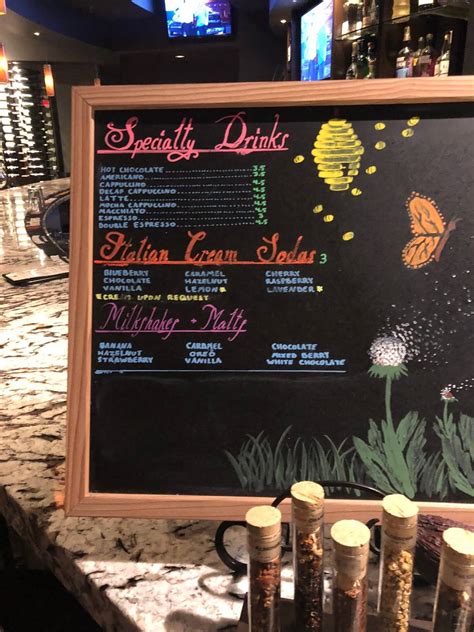 Specialty Drinks
HOT CHOCOLATE 3.5
AMERICANO 3.5
CAPPUCCINO 4.5
DECAF CAPPUCCINO 4.5
LATTE 4.5
MOCHA CAPPUCCINO 4.5
MACCHIATO 4.5
ESPRESSO 3
DOUBLE ESPRESSO 4.5
Italian Cream Sodas 3
BLUEBERRY CARAMEL CHERRY
CHOCOLATE HAZELNUT RASPBERRY
VANILLA LEMON* LAVENDER*
*CREAM UPON REQUEST
Milkshakes + Malts
BANANA CARAMEL CHOCOLATE
HAZELNUT OREO MIXED BERRY
STRAWBERRY VANILLA WHITE CHOCOLATE